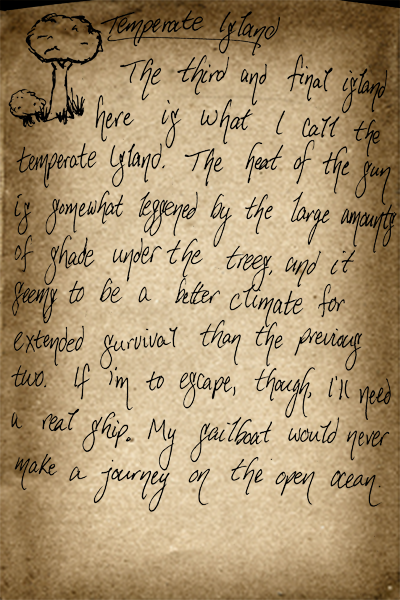 Temperate Island
The third and final island
here is what I call the
temperate Island. The heat of the sun
is somewhat lessened by the large amounts
of shade under the trees, and it
seems to be a better climate for
extended survival than the previous
two. If i'm to escape, though, I'll need
a real ship. My sailboat would never
make a journey on the open ocean.